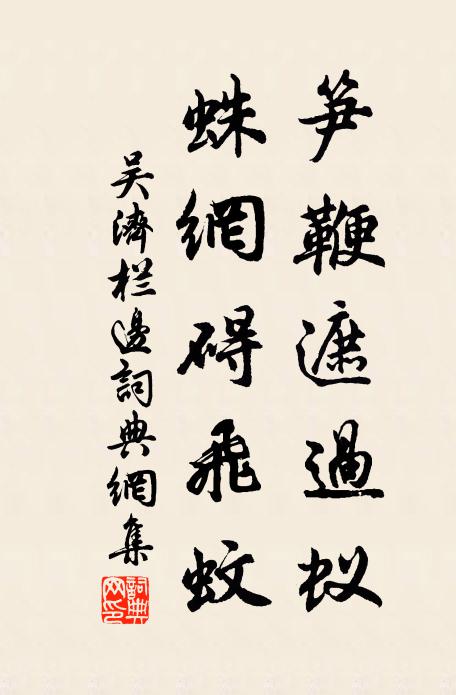 笋鞭遮過蚁
蛛網碍飛蚊
吴濟栏邊詞典網集
詞典
网印